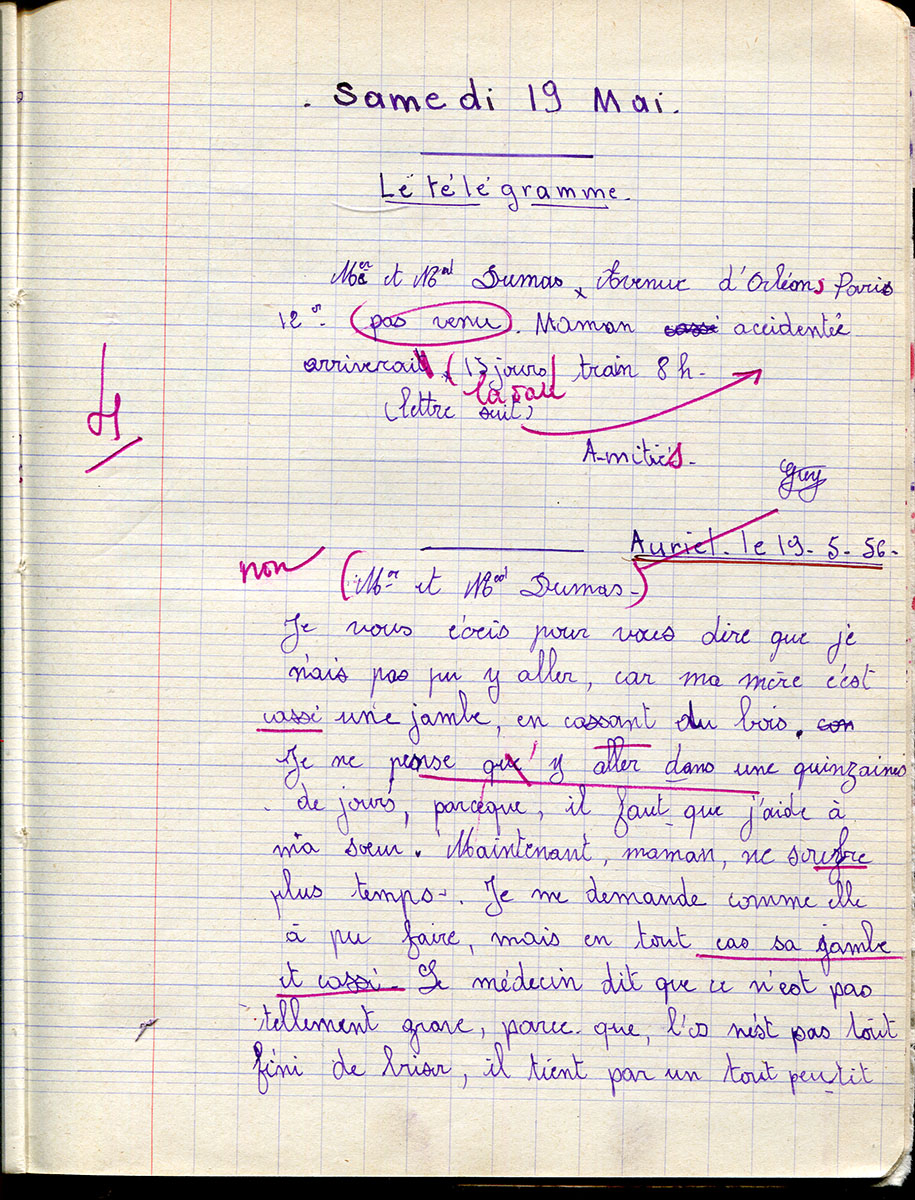 . Samedi 19 Mai.
Le télégramme.
Mer et Mad Dumas, Avenue d'Orléans Paris
12e. (pas venu). Maman cassé accidentée
arriverait (15 jours) train 8h-
(lettre suit)
Amitiés.
Guy
4
Auriel. le 19-5-56-
non (Mer et Mad Dumas-)
Je vous écris pour vous dire que je
n'ais pas pu y aller, car ma mère c'est
cassé une jambe, en cassant du bois. con
Je ne pense qu'y aller dans une quinzaines
de jours, parceque, il faut que j'aide à
ma sœur. Maintenant, maman, ne soufre
plus temps-. Je me demande comme elle
à pu faire, mais en tout cas sa jambe
et cassé- Le médecin dit que ce n'est pas
tellement grave, parce-que, l'os n'est pas tout
fini de briser, il tient par un tout peutit